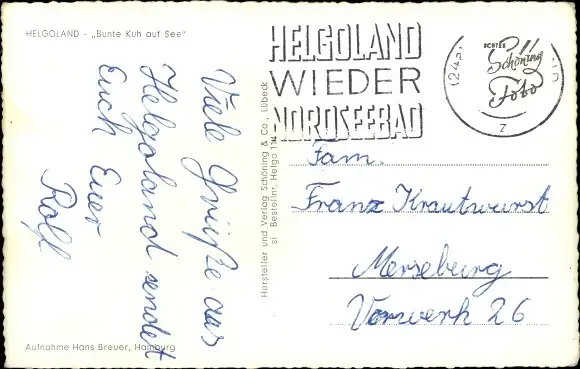 HELGOLAND - „Bunte Kuh auf See"
Viele Grüße aus
Helgoland sendet
Euch Euer
Rolf
Aufnahme Hans Breuer, Hamburg
Hersteller und Verlag Schöning & Co., Lübeck
si Bestellnr. Helgo 114
HELGOLAND
WIEDER
NORDSEEBAD
(24a
ECHTES
Schöning
Foto
z
Fam.
Franz Krautwurst
Merseburg
Vorwerk 26